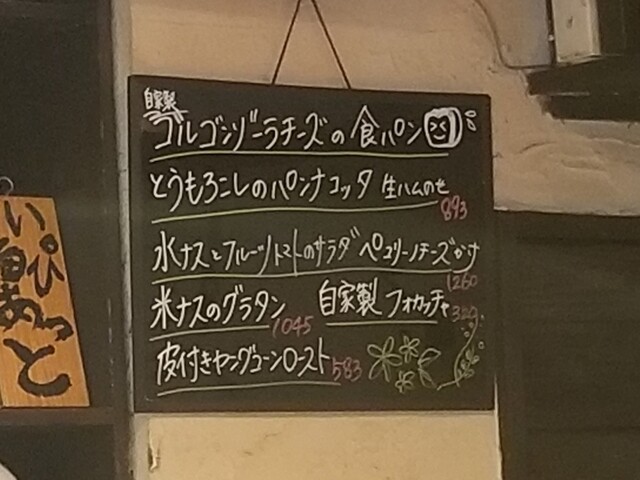 自家製
ゴルゴンゾーラチーズの食パン
とうもろこしのパンナコッタ 生ハムのせ
893
水ナスとフルーツトマトのサラダ ペコリーノチーズがけ
1260
米ナスのグラタン 1045 自家製フォカッチャ
皮付きヤングコーンロースト 583